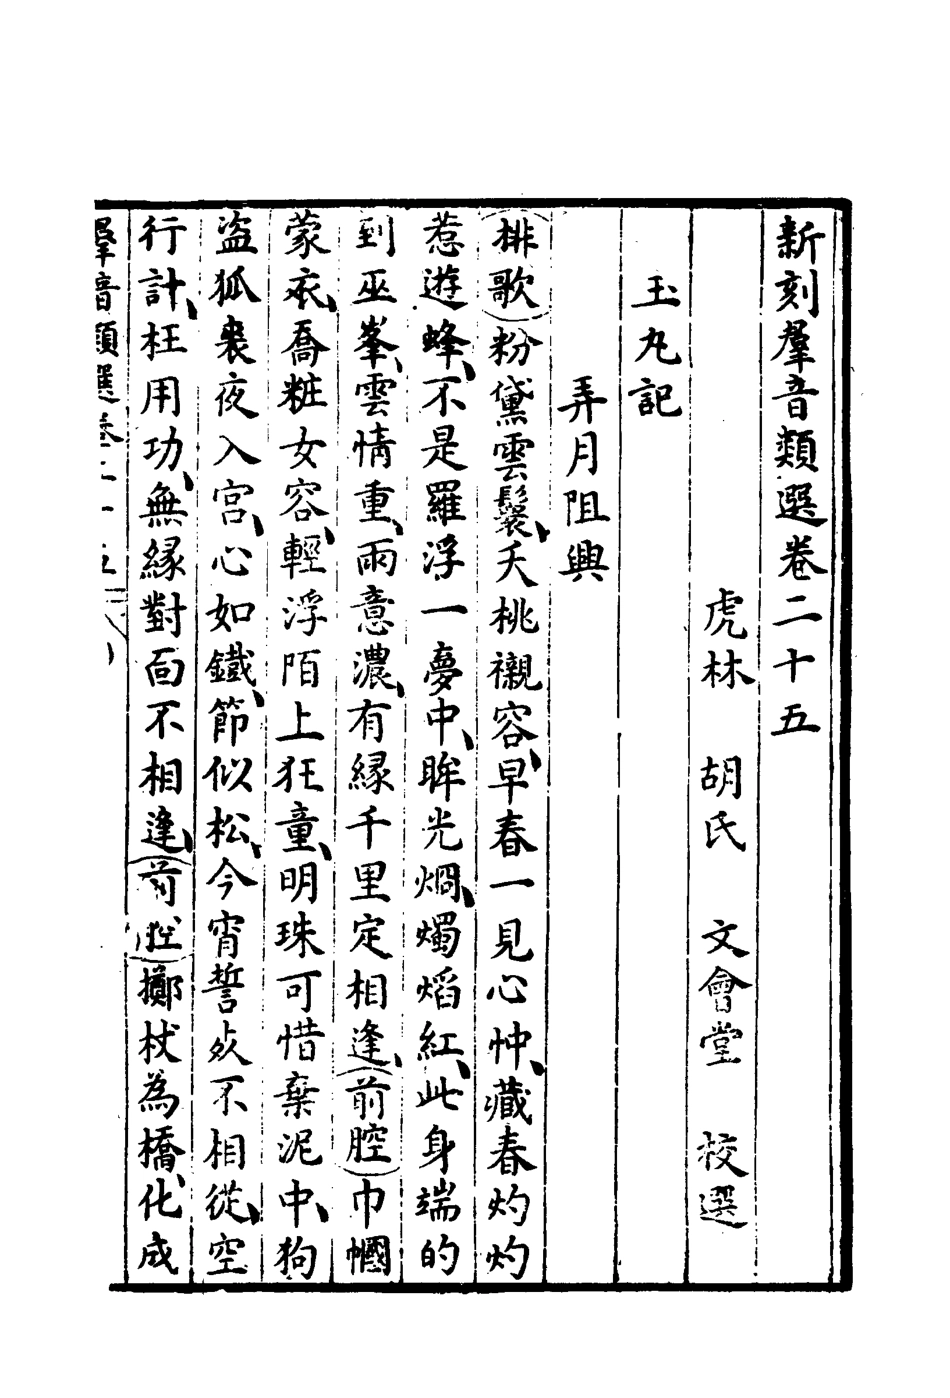 新刻羣音類選卷二十五
虎林 胡氏 文會堂 校選
玉丸記
弄月阻興
排歌粉黛雲鬟、夭桃襯容、早春一見心忡、藏春灼灼
惹遊蜂、不是羅浮一夢中、眸光燗、燭熖紅、此身端的
到巫峯、雲情重、雨意濃、有緣千里定相逢、前腔巾幗
蒙衣、喬粧女容、輕浮陌上狂童、明珠可惜棄泥中、狗
盜狐裘夜入宮、心如鐵、節似松、今宵誓死不相從、空
行計、枉用功、無緣對面不相逢、前腔擲杖為橋、化成
羣音類選卷二十五